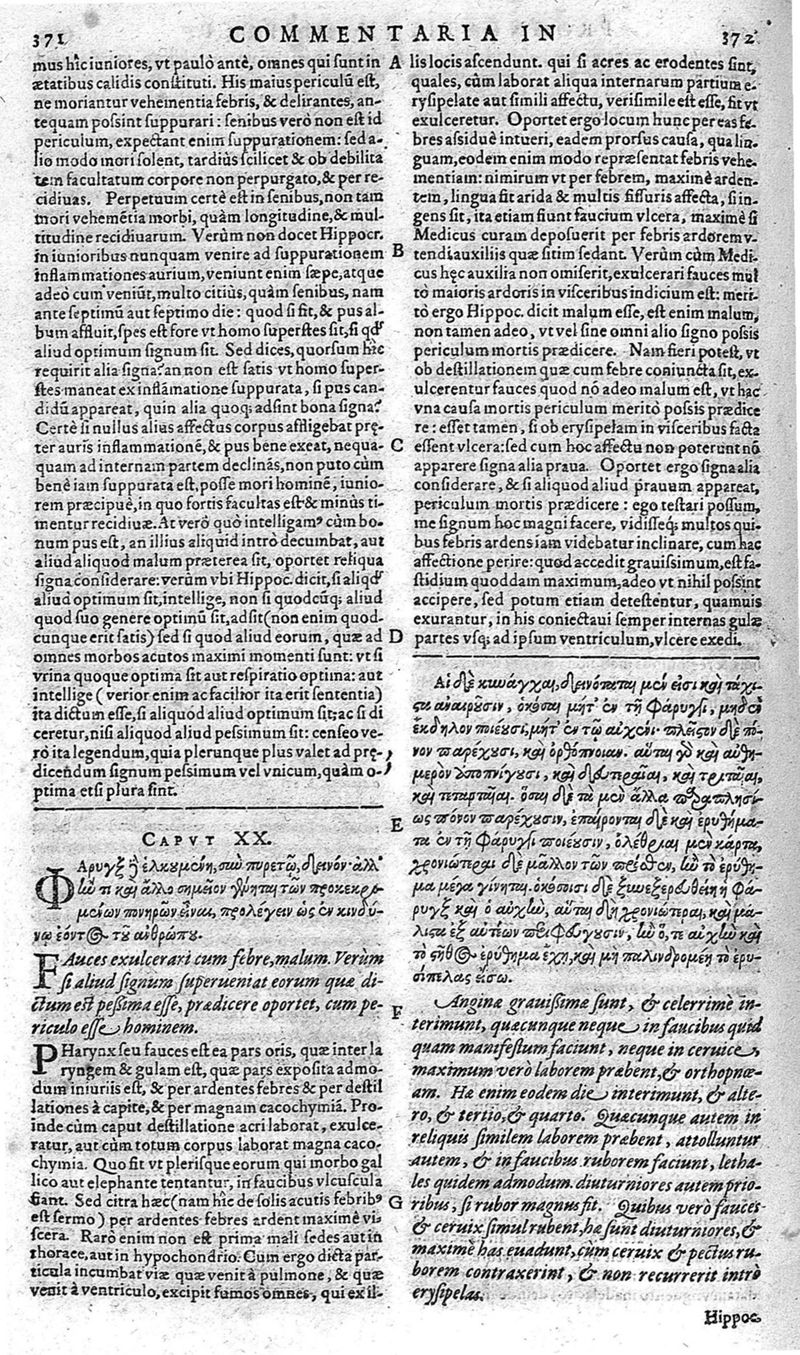 371
COMMENTARIA IN
372
mus hîc iuniores, vt paulò antè, omnes qui sunt in
ætatibus calidis constituti. His maius periculū est,
ne moriantur vehementia febris, & delirantes, an-
tequam possint suppurari: senibus verò non est id
periculum, expectant enim suppurationem: sed a-
lio modo mori solent, tardius scilicet & ob debilita
tem facultatum corpore non perpurgato, & per re-
cidiuas. Perpetuum certè est in senibus, non tam
mori vehemētia morbi, quàm longitudine, & mul-
titudine recidiuarum. Verùm non docet Hippocr.
in iunioribus nunquam venire ad suppurationem
inflammationes aurium, veniunt enim sæpe, atque
adeò cum veniūt, multo citiùs, quàm senibus, nam
ante septimū aut septimo die: quod si fit, & pus al-
bum affluit, spes est fore vt homo superstes sit, si qđ
aliud optimum signum sit. Sed dices, quorsum hîc
requirit alia signa? an non est satis vt homo super-
stes maneat ex inflāmatione suppurata, si pus can-
didū appareat, quin alia quoq; adsint bona signa?
Certè si nullus alius affectus corpus affligebat prę-
ter auris inflammationē, & pus bene exeat, nequa-
quam ad internam partem declinās, non puto cùm
benè iam suppurata est, posse mori hominē, iunio-
rem præcipuè, in quo fortis facultas est & minùs ti-
mentur recidiuæ. At verò quò intelligamꝰ cùm bo-
num pus est, an illius aliquid intrò decumbat, aut
aliud aliquod malum præterea sit, oportet reliqua
signa considerare: verùm vbi Hippoc. dicit, si aliqđ
aliud optimum sit, intellige, non si quodcūq; aliud
quod suo genere optimū sit, adsit (non enim quod-
cunque erit satis) sed si quod aliud eorum, quæ ad
omnes morbos acutos maximi momenti sunt: vt si
vrina quoque optima sit aut respiratio optima: aut
intellige (verior enim ac facilior ita erit sententia)
ita dictum esse, si aliquod aliud optimum sit; ac si di
ceretur, nisi aliquod aliud pessimum sit: censeo ve-
rò ita legendum, quia plerunque plus valet ad prę-
dicendum signum pessimum vel vnicum, quàm o-
ptima etsi plura sint.
CAPVT XX.
Φάρυγξ ἢ ἑλκουμένη, σὺν πυρετῷ, δεινόν· ἀλλ'
ἢν τι καὶ ἄλλο σημεῖον γένηται τῶν προκεκρι-
μένων πονηρῶν εἶναι, προλέγειν ὡς ἐν κινδύ-
νῳ ἐόντος τοῦ ἀνθρώπου.
FAuces exulcerari cum febre, malum. Verùm
si aliud signum superueniat eorum quæ di-
ctum est pessima esse, prædicere oportet, cum pe-
riculo esse hominem.
PHarynx seu fauces est ea pars oris, quæ inter la
ryngem & gulam est, quæ pars exposita admo-
dum iniuriis est, & per ardentes febres & per destil
lationes à capite, & per magnam cacochymiā. Pro-
inde cùm caput destillatione acri laborat, exulce-
ratur, aut cùm totum corpus laborat magna caco-
chymia. Quo fit vt plerisque eorum qui morbo gal
lico aut elephante tentantur, in faucibus vlcuscula
fiant. Sed citra hæc (nam hîc de solis acutis febribꝰ
est sermo) per ardentes febres ardent maximè vi-
scera. Rarò enim non est prima mali sedes aut in
thorace, aut in hypochondrio. Cum ergo dicta par-
ticula incumbat viæ quæ venit à pulmone, & quæ
venit à ventriculo, excipit fumos omnes, qui ex il-
A
B
C
D
E
F
G
lis locis ascendunt. qui si acres ac erodentes sint,
quales, cùm laborat aliqua internarum partium e-
rysipelate aut simili affectu, verisimile est esse, fit vt
exulceretur. Oportet ergo locum hunc per eas fe-
bres assiduè intueri, eadem prorsus causa, qua lin-
guam, eodem enim modo repræsentat febris vehe-
mentiam: nimirum vt per febrem, maximè arden-
tem, lingua fit arida & multis fissuris affecta, si in-
gens sit, ita etiam fiunt faucium vlcera, maximè si
Medicus curam deposuerit per febris ardorem v-
tendi auxilijs quæ sitim sedant. Verùm cùm Medi-
cus hęc auxilia non omiserit, exulcerari fauces mul
tò maioris ardoris in visceribus indicium est: meri-
tò ergo Hippoc. dicit malum esse, est enim malum,
non tamen adeo, vt vel sine omni alio signo possis
periculum mortis prædicere. Nam fieri potest, vt
ob destillationem quæ cum febre coniuncta sit, ex-
ulcerentur fauces quod nō adeo malum est, vt hac
vna causa mortis periculum meritò possis prædice
re: esset tamen, si ob erysipelam in visceribus facta
essent vlcera: sed cum hoc affectu non poterunt nō
apparere signa alia praua. Oportet ergo signa alia
considerare, & si aliquod aliud prauum appareat,
periculum mortis prædicere: ego testari possum,
me signum hoc magni facere, vidisseq; multos qui-
bus febris ardens iam videbatur inclinare, cum hac
affectione perire: quod accedit grauissimum, est fa-
stidium quoddam maximum, adeo vt nihil possint
accipere, sed potum etiam detestentur, quamuis
exurantur, in his coniectaui semper internas gulæ
partes vsq; ad ipsum ventriculum, vlcere exedi.
Αἱ δὲ κυνάγχαι, δεινόταται μέν εἰσι καὶ τάχι-
στα ἀναιρουσιν, ὁκόσαι μήτ' ἐν τῇ φάρυγγι, μηδὲν
ἔκδηλον ποιέουσι, μήτ' ἐν τῷ αὐχένι· πλεῖστον δὲ πό-
νον παρέχουσι, καὶ ὀρθόπνοιαν. αὗται γὸ καὶ αὐθη-
μερὸν ἀποπνίγουσι, καὶ δευτεραῖαι, καὶ τριταῖαι,
καὶ τεταρταῖαι. ὅσαι δὲ τὰ μὲν ἄλλα παραπλησί-
ως πόνον παρέχουσιν, ἐπαίρονται δὲ καὶ ἐρυθήμα-
τα ἐν τῇ φάρυγγι ποιέουσιν, ὀλέθριαι μὲν κάρτα,
χρονιώτεραι δὲ μᾶλλον τῶν πρόσθεν, ἢν τὸ ἐρύθη-
μα μέγα γίνηται. ὁκόσοισι δὲ ξυνεξερευθείη ἡ φά-
ρυγξ καὶ ὁ αὐχὴν, αὗται δὴ χρονιώτεραι, καὶ μά-
λιστα ἐξ αὐτέων περιφεύγουσιν, ἢν ὅ, τε αὐχὴν καὶ
τὸ στῆθος ἐρύθημα ἔχῃ, καὶ μὴ παλινδρομέῃ τὸ ἐρυ-
σίπελας εἴσω.
Anginæ grauissimæ sunt, & celerrimè in-
terimunt, quæcunque neque in faucibus quid
quam manifestum faciunt, neque in ceruice,
maximum verò laborem præbent, & orthopnœ-
am. Hæ enim eodem die interimunt, & alte-
ro, & tertio, & quarto. Quæcunque autem in
reliquis similem laborem præbent, attolluntur
autem, & in faucibus ruborem faciunt, letha-
les quidem admodum. diuturniores autem prio-
ribus, si rubor magnus fit. Quibus verò fauces
& ceruix simul rubent, hæ sunt diuturniores, &
maximè has euadunt, cùm ceruix & pectus ru-
borem contraxerint, & non recurrerit intrò
erysipelas.
Hippoc.